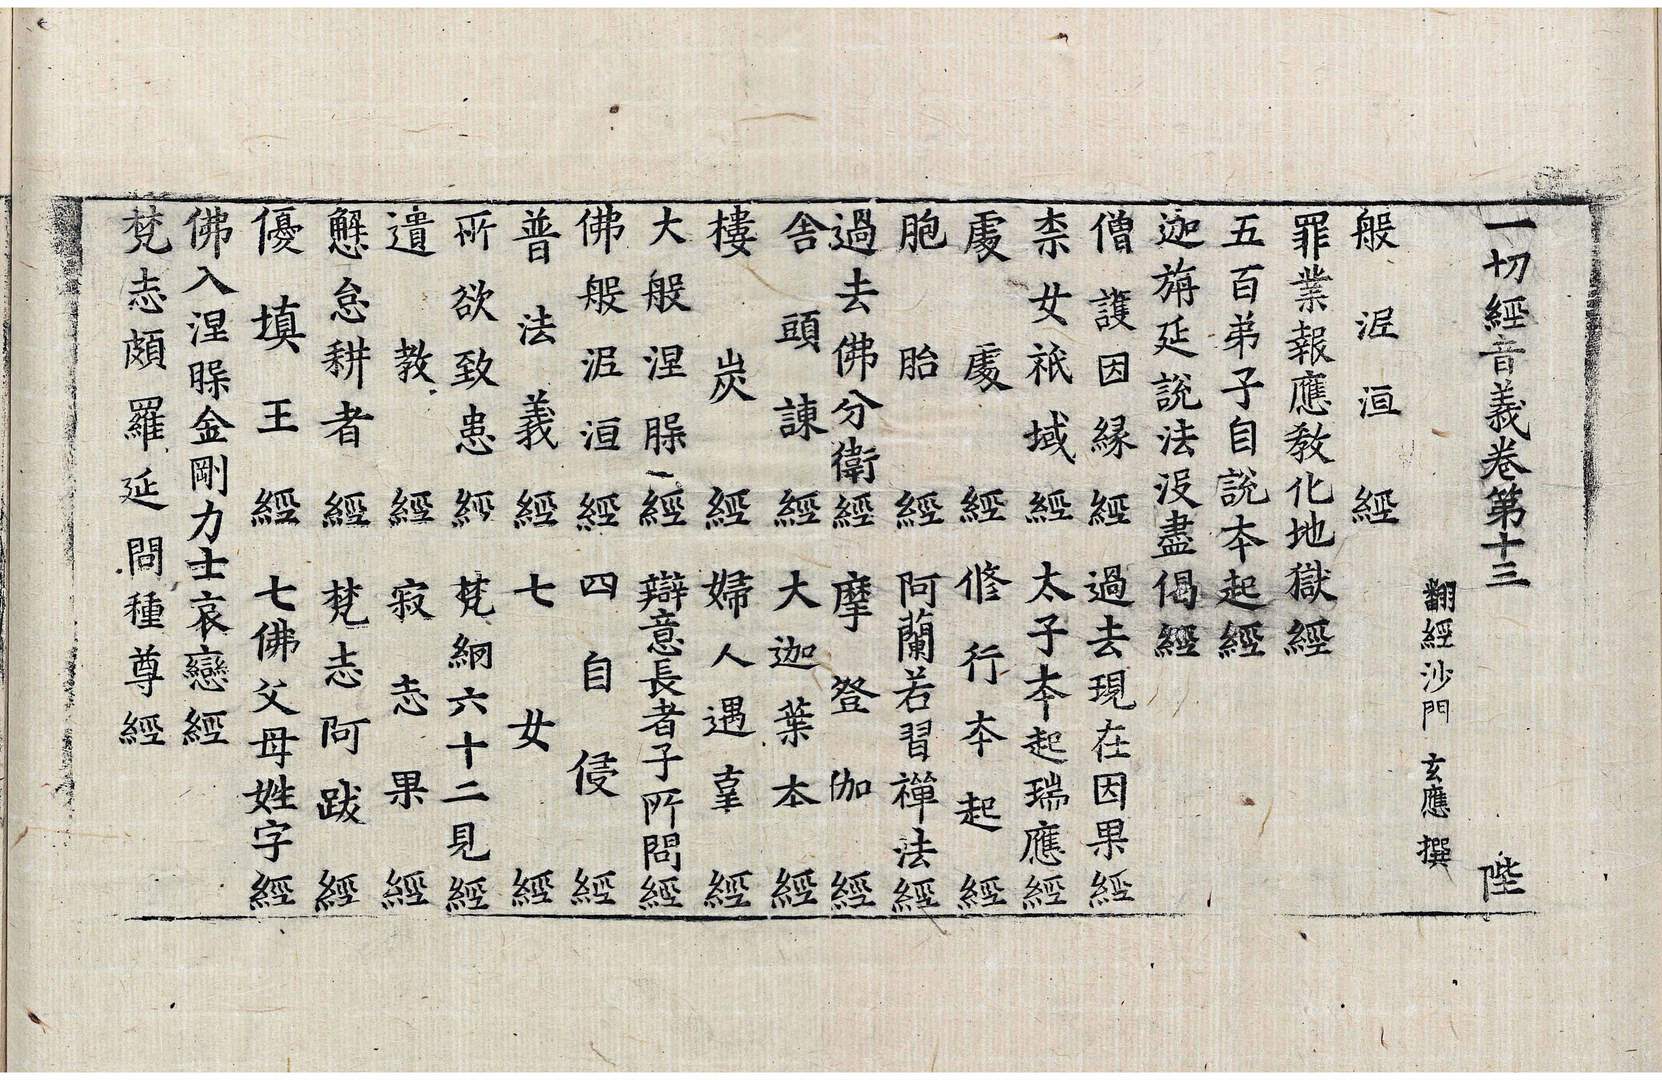 一切經音義卷第十三 陛
翻經沙門 玄應 撰
般泥洹經
罪業報應教化地獄經
五百弟子自說本起經
迦旃延說法沒盡偈經
僧護因緣經 過去現在因果經
柰女祇域經 太子本起瑞應經
處處經 修行本起經
胞胎經 阿蘭若習禪法經
過去佛分衛經 摩登伽經
舍頭諫經 大迦葉本經
樓炭經 婦人遇辜經
大般涅槃經 辯意長者子所問經
佛般泥洹經 四自侵經
普法義經 七女經
所欲致患經 梵網六十二見經
遺教經 寂志果經
懈怠耕者經 梵志阿颰經
優填王經 七佛父母姓字經
佛入涅槃金剛力士哀戀經
梵志頗羅延問種尊經